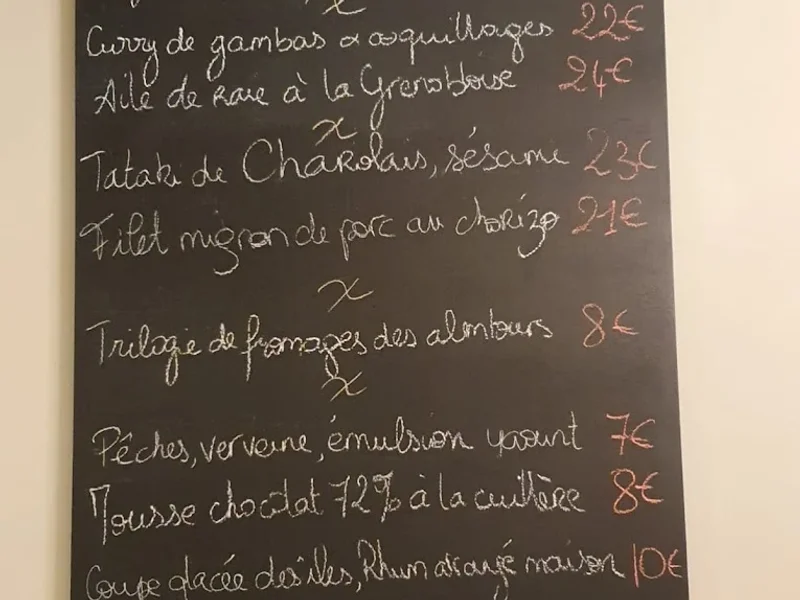 Curry de gambas & coquillages 22€
Aile de Raie à la Grenobloise 24€
x
Tataki de Charolais, sésame 23€
Filet mignon de porc au chorizo 21€
x
Trilogie de fromages des alentours 8€
x
Pêches, verveine, émulsion yaourt 7€
Mousse chocolat 72% à la cuillère 8€
Coupe glacée des îles, Rhum arrangé maison 10€